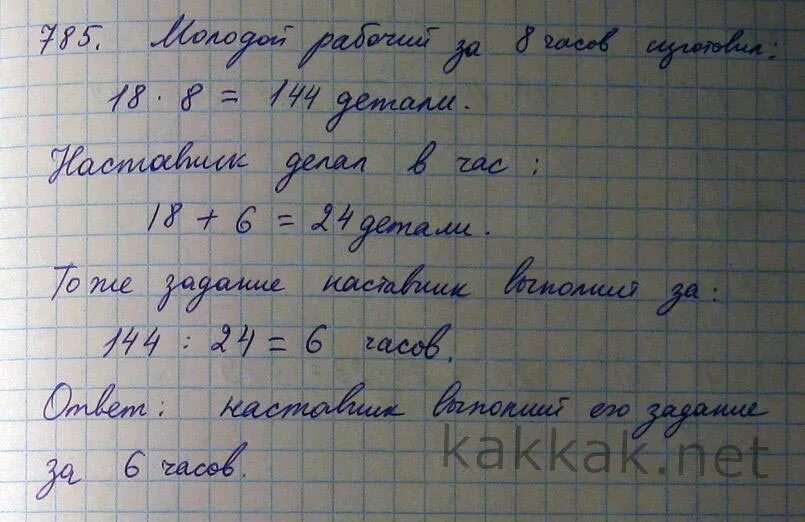 785. Молодой рабочий за 8 часов изготовил:
18 · 8 = 144 детали.
Наставник делал в час:
18 + 6 = 24 детали.
Тоже задание наставник выполнит за:
144 : 24 = 6 часов.
Ответ: наставник выполнит его задание
за 6 часов.
kakkak.net